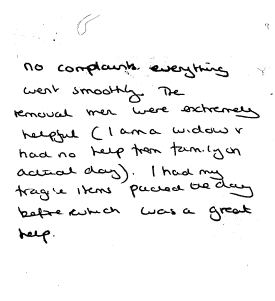 no complaints everything
went smoothly. The
removal men were extremely
helpful (I am a widow &
had no help from family on
actual day). I had my
fragile items packed the day
before which was a great
help.